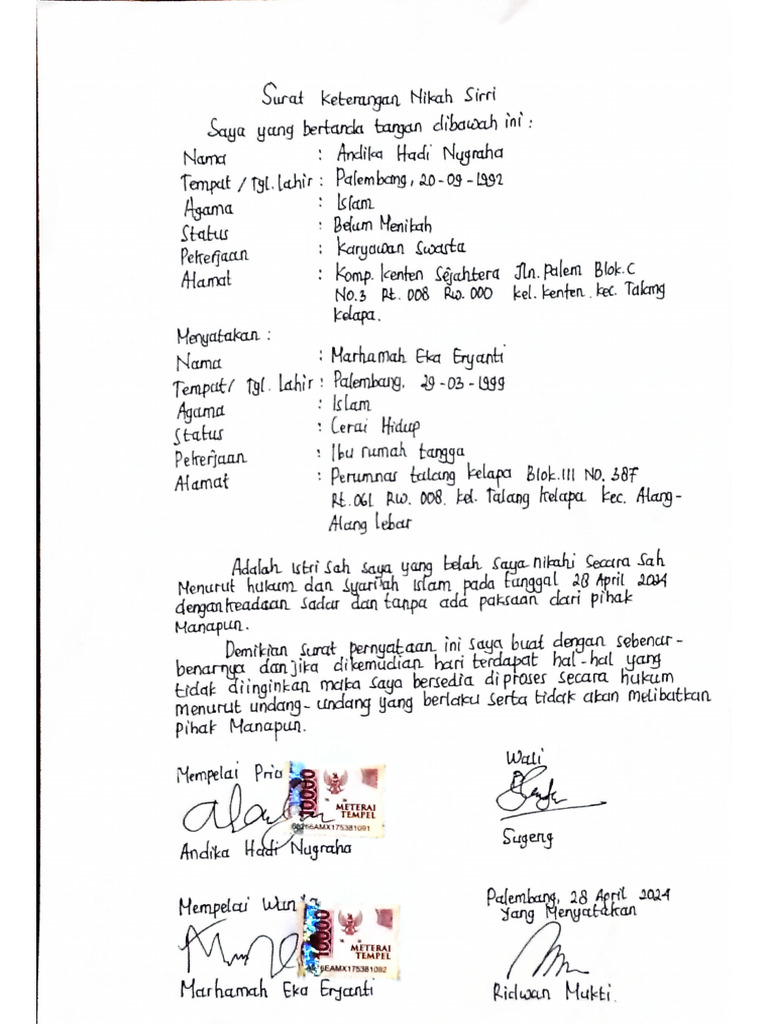 Surat Keterangan Nikah Sirri
Saya yang bertanda tangan dibawah ini :
Nama : Andika Hadi Nugraha
Tempat / Tgl. Lahir : Palembang, 20-09-1992
Agama : Islam
Status : Belum Menikah
Pekerjaan : Karyawan Swasta
Alamat : Komp. Kenten Sejahtera Jln. Palem Blok.C
No.3 Rt. 008 Rw. 000 kel. kenten. kec. Talang
kelapa.
Menyatakan :
Nama : Marhamah Eka Eryanti
Tempat / Tgl. Lahir : Palembang, 29-03-1999
Agama : Islam
Status : Cerai Hidup
Pekerjaan : Ibu rumah tangga
Alamat : Perumnas talang kelapa Blok.III NO. 387
Rt.061 Rw. 008. kel. Talang kelapa kec. Alang-
Alang lebar
Adalah istri sah saya yang telah saya nikahi secara sah
Menurut hukum dan Syari'ah Islam pada tanggal 28 April 2024
dengan keadaan sadar dan tanpa ada paksaan dari pihak
Manapun.
Demikian surat pernyataan ini saya buat dengan sebenar-
benarnya dan jika dikemudian hari terdapat hal-hal yang
tidak diinginkan maka saya bersedia diproses secara hukum
menurut undang-undang yang berlaku serta tidak akan melibatkan
Pihak Manapun.
Mempelai Pria
10000
METERAI
TEMPEL
Andika Hadi Nugraha
Wali
Sugeng
Mempelai
10000
METERAI
TEMPEL
Marhamah Eka Eryanti
Palembang, 28 April 2024
Yang Menyatakan
Ridwan Mukti.